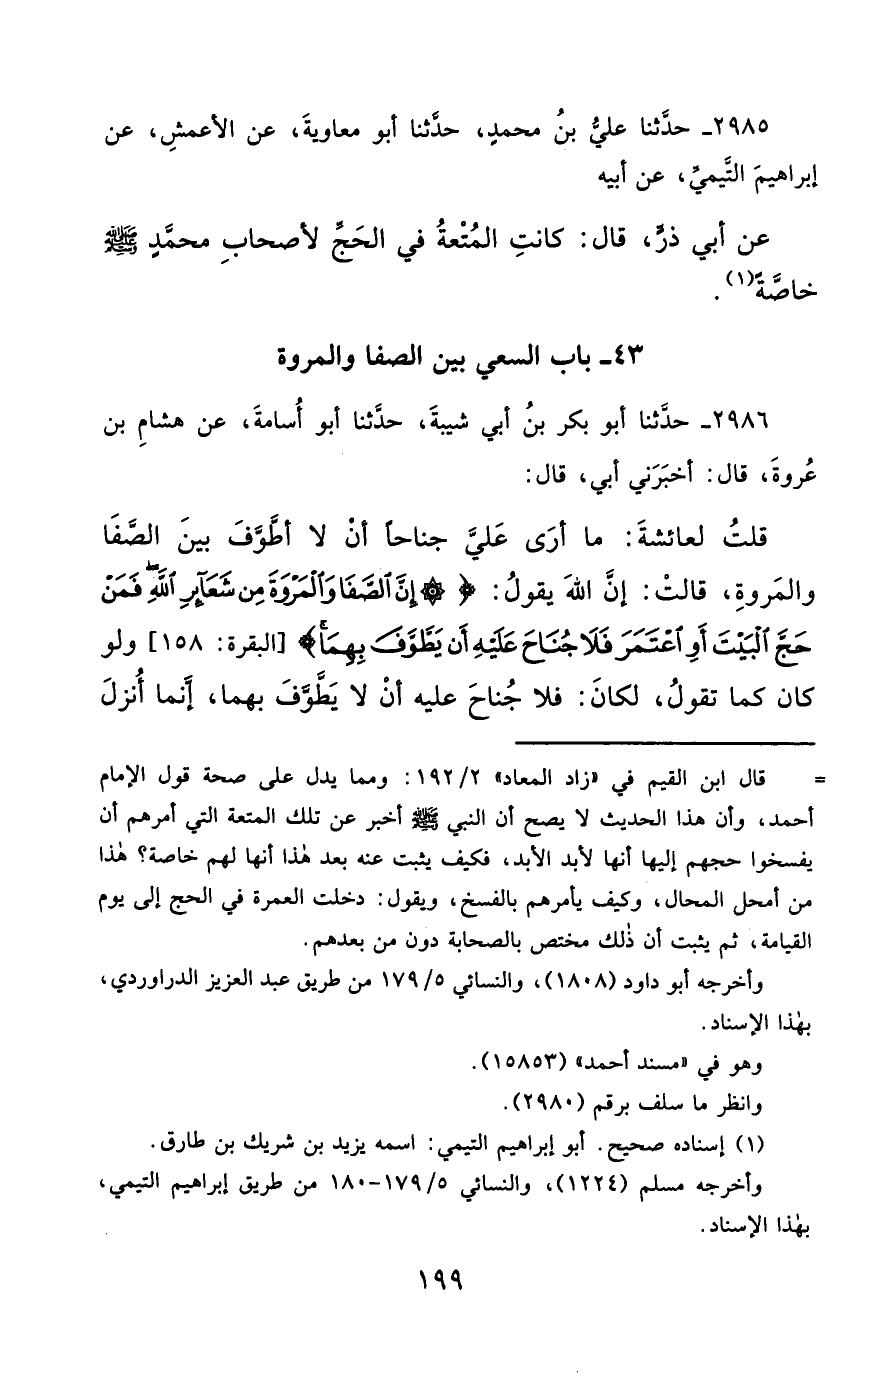 ٢٩٨٥ـ حدَّثنا عليُّ بنُ محمدٍ، حدَّثنا أبو معاويةَ، عن الأعمشِ، عن
إبراهيمَ التَّيميِّ، عن أبيه
عن أبي ذرٍّ، قال: كانتِ المُتْعةُ في الحَجِّ لأصحابِ محمَّدٍ ﷺ
خاصَّةً(١).
٤٣ـ باب السعي بين الصفا والمروة
٢٩٨٦ـ حدَّثنا أبو بكر بنُ أبي شيبةَ، حدَّثنا أبو أُسامةَ، عن هشامِ بن
عُروةَ، قال: أخبَرَني أبي، قال:
قلتُ لعائشةَ: ما أرَى عَليَّ جناحاً أنْ لا أطَّوَّفَ بينَ الصَّفَا
والمَروةِ، قالتْ: إنَّ اللهَ يقولُ: ﴿ ۞ إِنَّ ٱلصَّفَا وَٱلْمَرْوَةَ مِن شَعَآئِرِ ٱللَّهِۖ فَمَنْ
حَجَّ ٱلْبَيْتَ أَوِ ٱعْتَمَرَ فَلَا جُنَاحَ عَلَيْهِ أَن يَطَّوَّفَ بِهِمَاۚ﴾ [البقرة: ١٥٨] ولو
كان كما تقولُ، لكانَ: فلا جُناحَ عليه أنْ لا يَطَّوَّفَ بهما، إنَّما أُنزلَ
= قال ابن القيم في «زاد المعاد» ١٩٢/٢: ومما يدل على صحة قول الإمام
أحمد، وأن هذا الحديث لا يصح أن النبي ﷺ أخبر عن تلك المتعة التي أمرهم أن
يفسخوا حجهم إليها أنها لأبد الأبد، فكيف يثبت عنه بعد هٰذا أنها لهم خاصة؟ هٰذا
من أمحل المحال، وكيف يأمرهم بالفسخ، ويقول: دخلت العمرة في الحج إلى يوم
القيامة، ثم يثبت أن ذٰلك مختص بالصحابة دون من بعدهم.
وأخرجه أبو داود (١٨٠٨)، والنسائي ١٧٩/٥ من طريق عبد العزيز الدراوردي،
بهٰذا الإسناد.
وهو في «مسند أحمد» (١٥٨٥٣).
وانظر ما سلف برقم (٢٩٨٠).
(١) إسناده صحيح. أبو إبراهيم التيمي: اسمه يزيد بن شريك بن طارق.
وأخرجه مسلم (١٢٢٤)، والنسائي ١٧٩/٥-١٨٠ من طريق إبراهيم التيمي،
بهٰذا الإسناد.
١٩٩